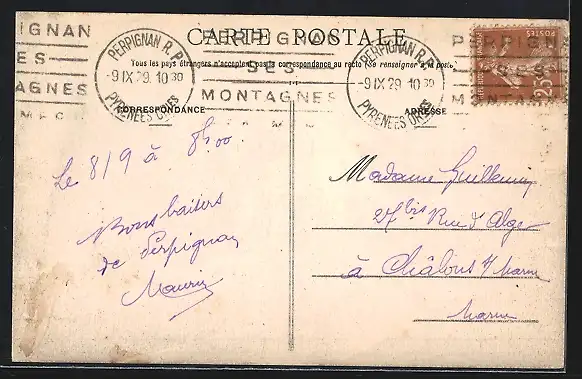 CARTE POSTALE
Tous les pays étrangers n'acceptent pas la correspondance au recto (Se renseigner à la poste)
PERPIGNAN
SES
MONTAGNES
PERPIGNAN R.P.
-9 IX 29. 10 30
PYRENEES ORles
PERPIGNAN
SES
MONTAGNES
PERPIGNAN R.P.
-9 IX 29. 10 30
PYRENEES ORles
PERPIGN
SES
MONTA
POSTES
25
CORRESPONDANCE
ADRESSE
Le 8/9 à 8h00
Bons baisers
de Perpignan
Maurice
Madame Guillemin
27bis Rue d'Alger
à Châlons s/ Marne
Marne